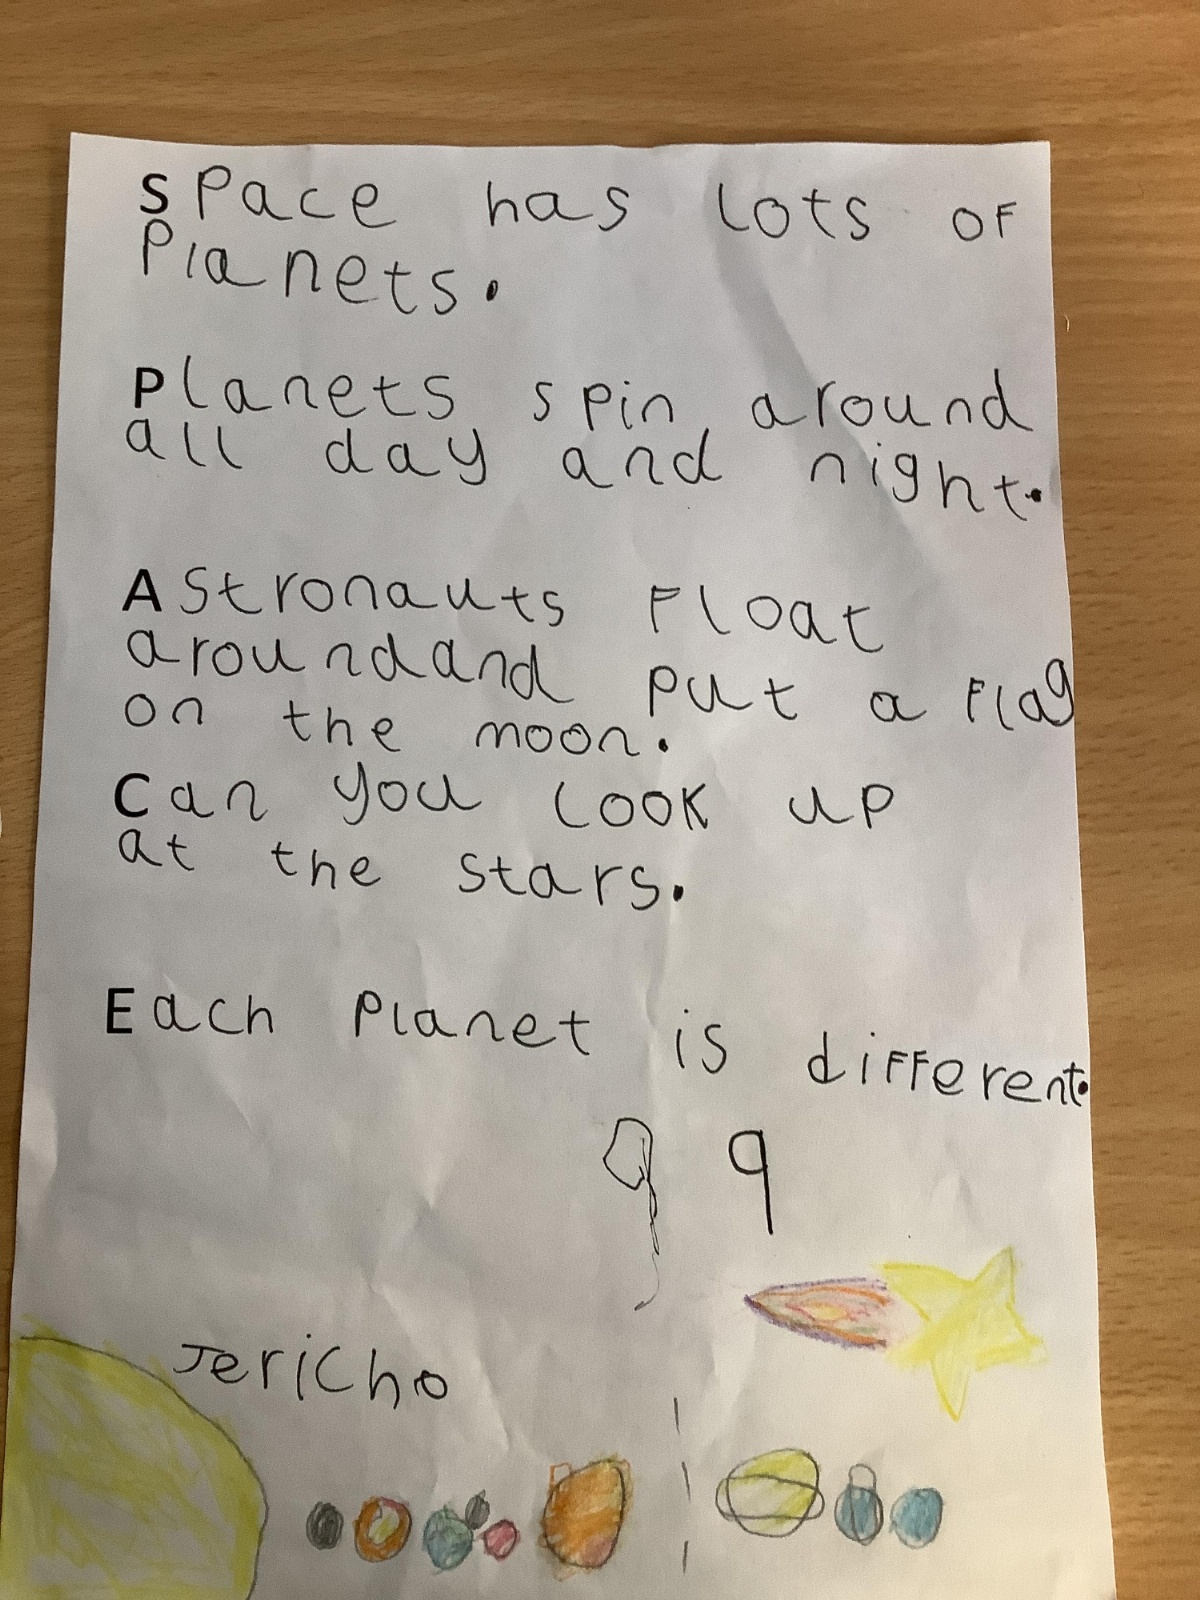 SPace has lots of
Planets.
Planets spin around
all day and night.
AStronauts Float
aroundand put a Flag
on the moon.
Can you look up
at the stars.
Each Planet is different.
9
Jericho